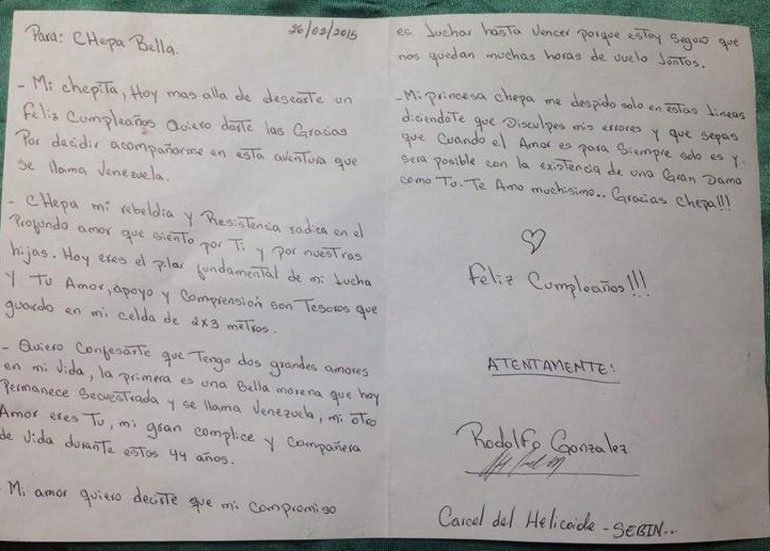 Para: CHepa Bella.
26/02/2015
- Mi chepita, Hoy mas alla de desearte un
Feliz Cumpleaños Quiero darte las Gracias
Por decidir acompañarme en esta aventura que
se llama Venezuela.
- CHepa mi rebeldia y Resistencia radica en el
Profundo amor que siento por Ti y por nuestras
hijas. Hoy eres el pilar fundamental de mi Lucha
y Tu Amor, apoyo y comprensión son Tesoros que
guardo en mi celda de 2x3 metros.
- Quiero confesarte que Tengo dos grandes amores
en mi vida, la primera es una Bella morena que hoy
Permanece Secuestrada y se llama Venezuela, mi otro
Amor eres Tu, mi gran complice y compañera
de Vida durante estos 44 años.
- Mi amor quiero decirte que mi compromiso
es Luchar hasta Vencer porque estoy Seguro que
nos quedan muchas horas de vuelo Juntos.
- Mi princesa chepa me despido solo en estas Lineas
diciendote que Disculpes mis errores y que sepas
que Cuando el Amor es para Siempre solo es y
sera posible con la existencia de una Gran Dama
como Tu. Te Amo muchisimo.. Gracias Chepa!!!
Feliz Cumpleaños!!!
ATENTAMENTE:
Rodolfo Gonzalez
Carcel del Helicoide - SEBIN...